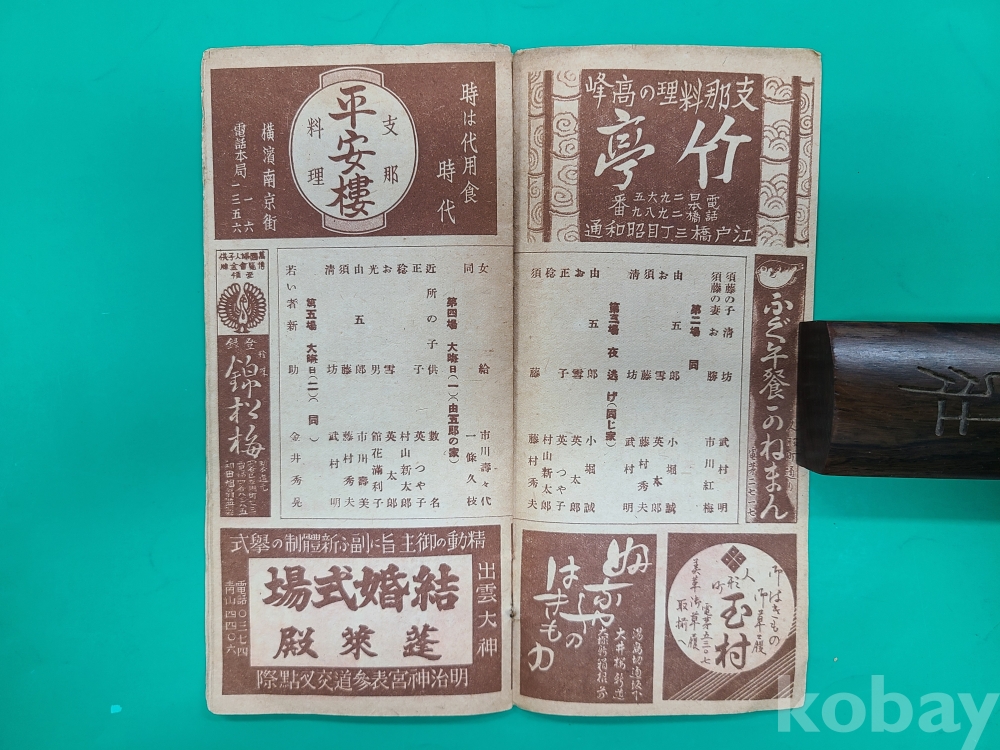 支那料理の高峰
竹亭
電話
日本橋
二九六五
二九八九
番
江戸橋三丁目昭和通
ふぐ午餐 このねまん
須藤の子 清坊 武村明
須藤の妻 お勝 市川紅梅
第二場 同
由五郎 小堀誠
お雪 英太郎
須藤 藤村秀夫
清坊 武村明
第三場 夜逃げ(同じ家)
由五郎 小堀誠
お雪 英太郎
正子 英つや子
稔 村山新太郎
須藤 藤村秀夫
御はきもの
御草履
人形町
玉村
美革御草履
取揃へ
はきもの
湯島切通坂下
大井桜新道
時は代用食
時代
支那
料理
平安樓
橫濱南京街
電話本局
一一六
一三五六
女給 市川壽々代
同 一條久枝
第四場 大晦日(一)(由五郎の家)
近所の子供 數名
正子 英つや子
稔 村山新太郎
お雪 英太郎
光男 館花滿利子
由五郎 市川壽美
須藤 藤村秀夫
清坊 武村明
第五場 大晦日(二)(同)
若い者新助 金井秀晃
登録
錦松梅
精動の御主旨に副ふ新體制の擧式
出雲大神
結婚式場
蓬萊殿
電話
青山
〇三七四
四四〇六
明治神宮表參道交叉點際
kobay